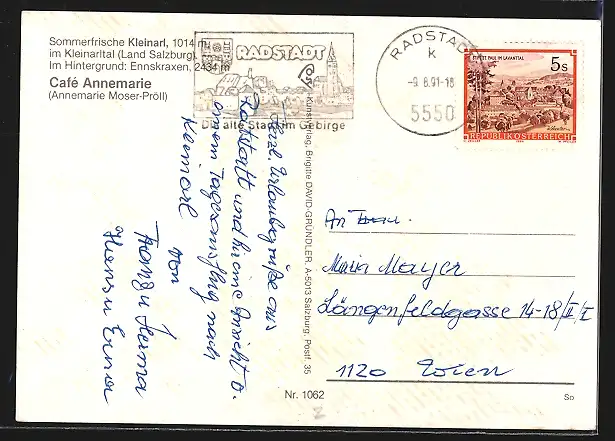 Sommerfrische Kleinarl, 1014 m,
im Kleinarltal (Land Salzburg).
Im Hintergrund: Ennskraxen, 2434 m
Café Annemarie
(Annemarie Moser-Pröll)
RADSTADT
Die alte Stadt im Gebirge
RADSTADT
k
-9.8.91-18
5550
STIFT ST. PAUL IM LAVANTTAL
5 S
REPUBLIK ÖSTERREICH
Herzl. Urlaubsgrüße aus
Radstatt und hir eine Ansicht v.
einem Tagesausflug nach
Kleinarl
von
Franz u Herma
Hans u Erna
Kunstverlag, Brigitte DAVID-GRÜNDLER, A-5013 Salzburg, Postf. 35
An
Maria Mayer
Längenfeldgasse 14-18/II/I
1120 Wien
Nr. 1062
So